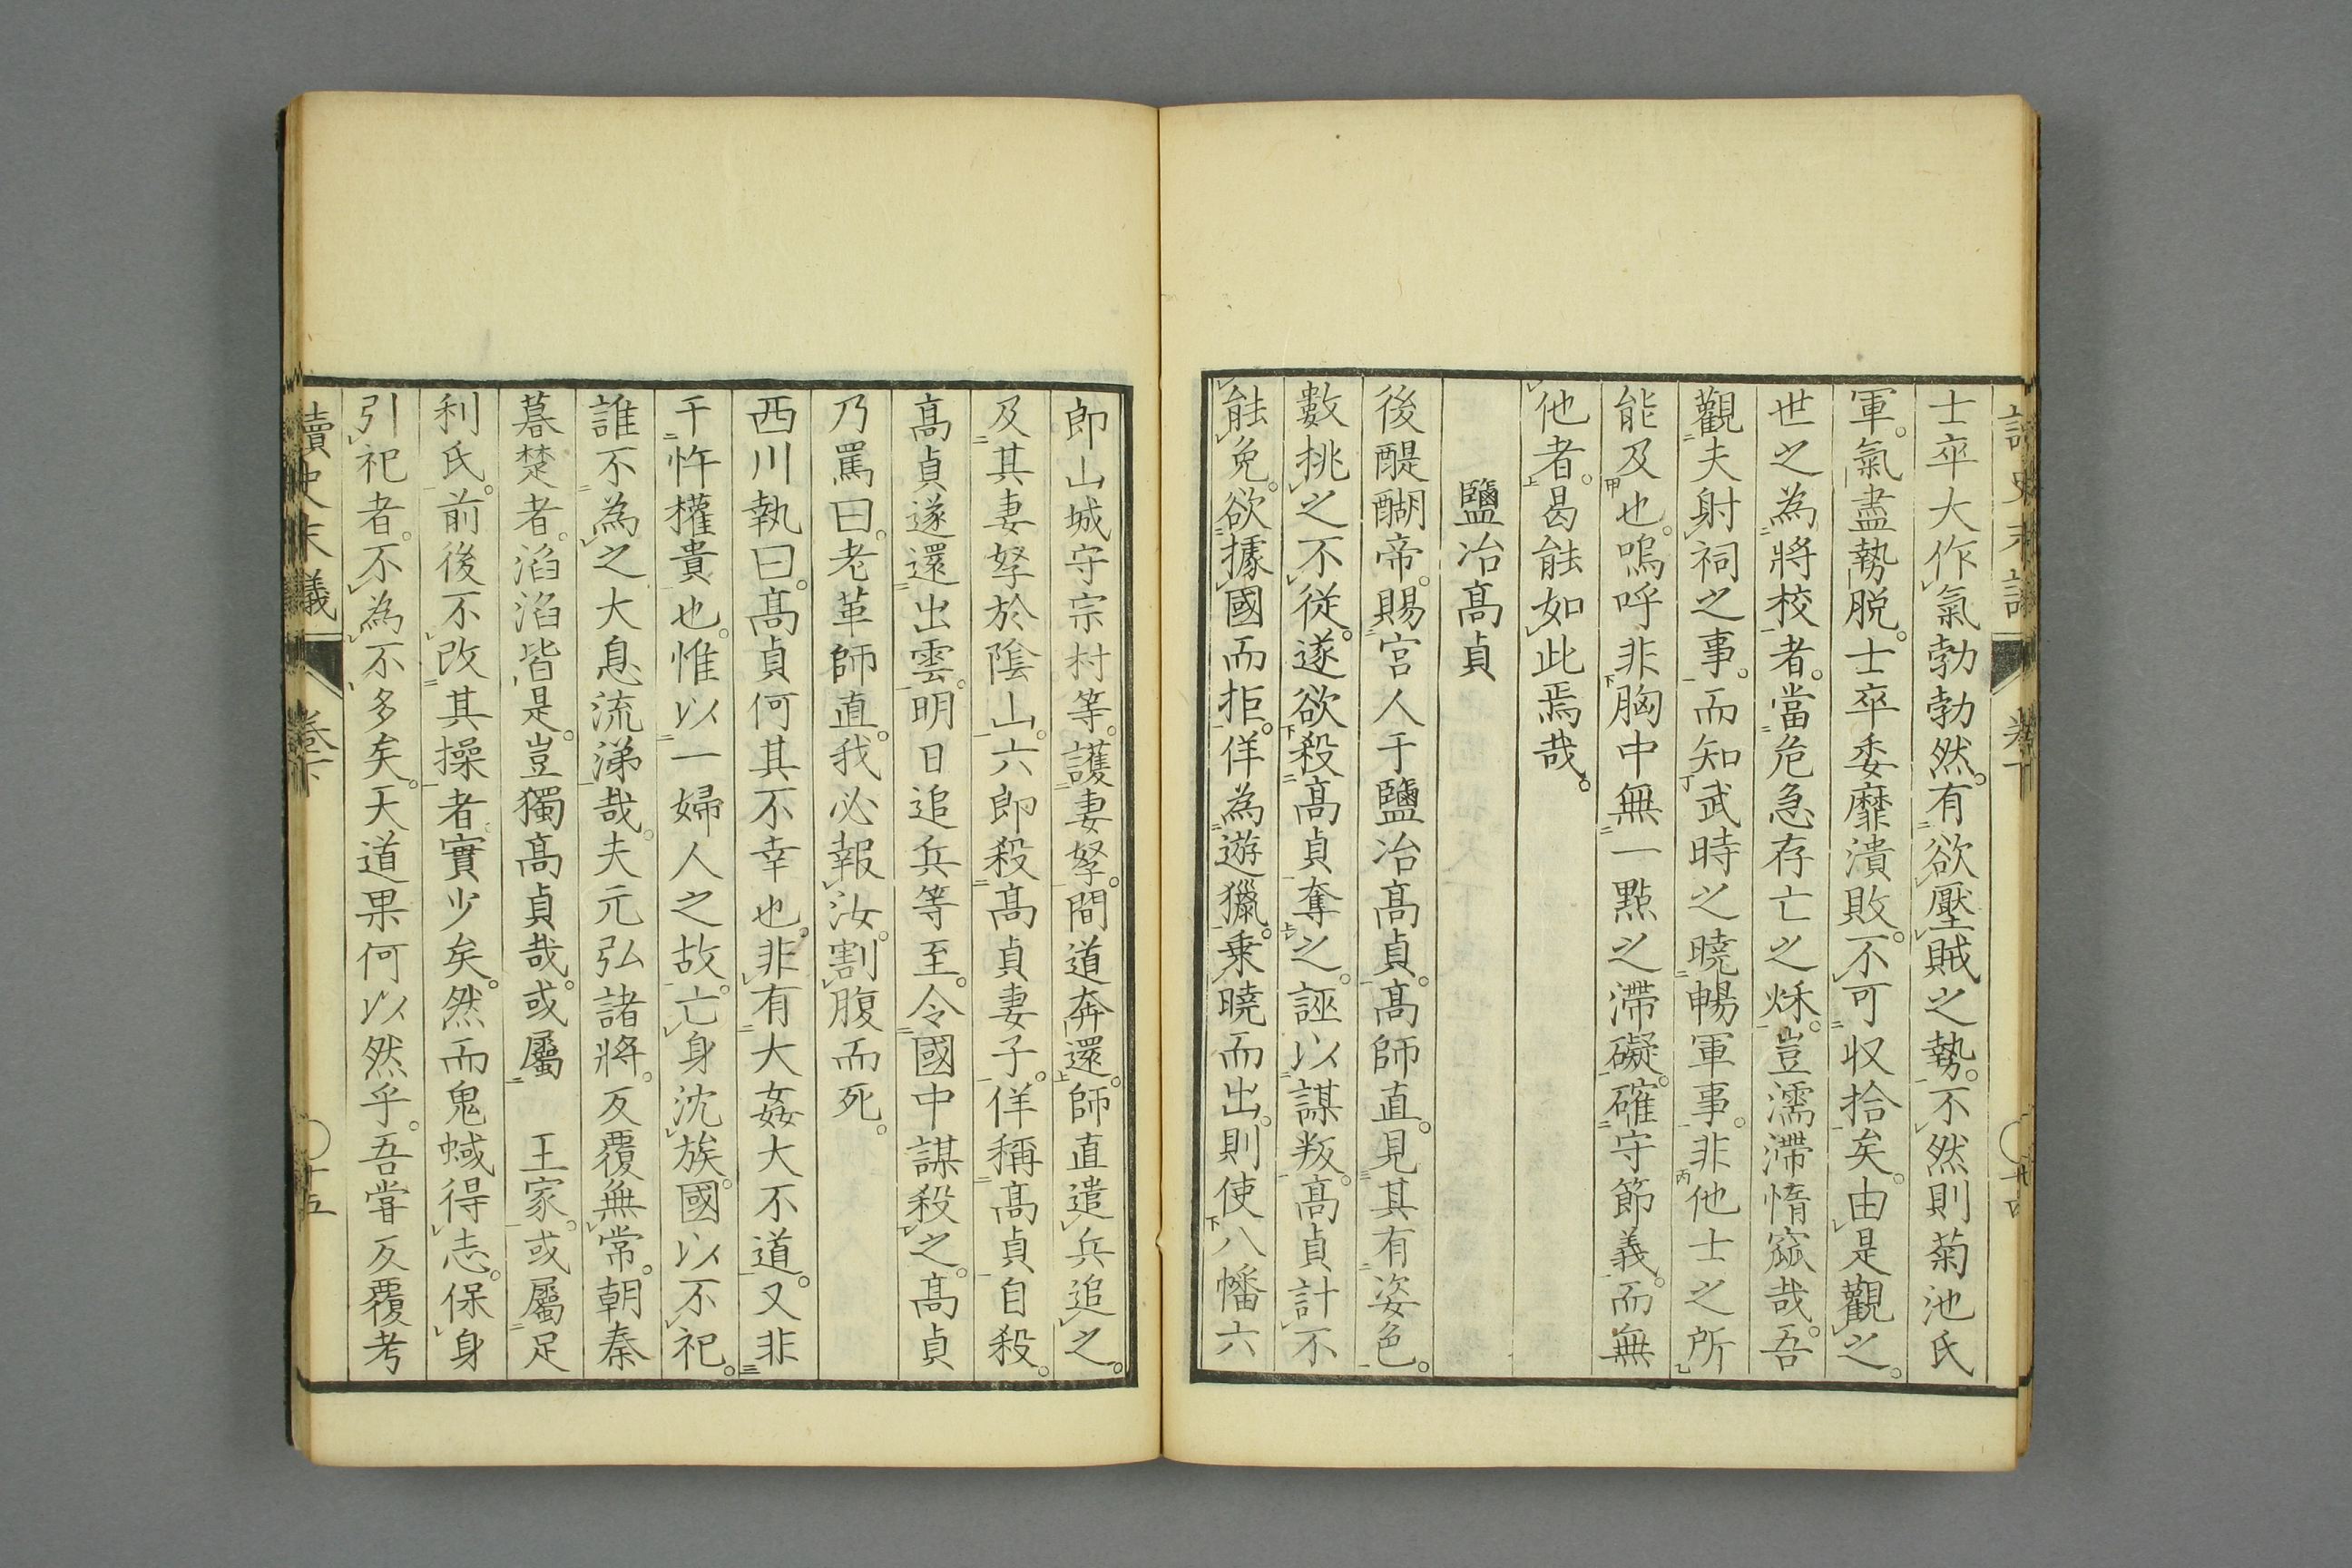 士卒大作氣勃勃然。有欲壓賊之勢。不然則菊池氏
軍。氣盡勢脱。士卒委靡潰敗。不可収拾矣。由是觀之。
世之為將校者。當危急存亡之秌。豈濡滯惰窳哉。吾
觀夫射祠之事。而知武時之曉暢軍事。非他士之所
能及也。嗚呼非胸中無一點之滯礙。確守節義。而無
他者。曷能如此焉哉。
鹽冶高貞
後醍醐帝。賜宮人于鹽冶高貞。高師直。見其有姿色。
數挑之不從。遂欲殺高貞奪之。誣以謀叛。高貞計不
能免。欲據國而拒。佯為遊獵。乗曉而出。則使八幡六
郎山城守宗村等。護妻孥。間道奔還。師直遣兵追之。
及其妻孥於陰山。六郎殺高貞妻子。佯稱高貞自殺。
高貞遂還出雲。明日追兵等至。令國中謀殺之。高貞
乃罵曰。老革師直。我必報汝。割腹而死。
西川執曰。高貞何其不幸也。非有大姦大不道。又非
干忤權貴也。惟以一婦人之故。亡身沈族。國以不祀。
誰不為之大息流涕哉。夫元弘諸將。反覆無常。朝秦
暮楚者。滔滔皆是。豈獨高貞哉。或屬　王家。或屬足
利氏。前後不改其操者。實少矣。然而鬼蜮得志。保身
引祀者。不為不多矣。天道果何以然乎。吾甞反覆考
讀史末議
卷下
十五